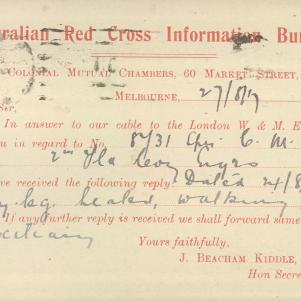 ralian Red Cross Information Bu
Colonial Mutual Chambers, 60 Market Street,
Melbourne, 27/8/17
Sir,
In answer to our cable to the London W & M E
u in regard to No. 8731 C. M.
2nd
ve received the following reply: Dated 24/8
healed, walking
If any further reply is received we shall forward same
Yours faithfully,
J. Beacham Kiddle,
Hon Secre